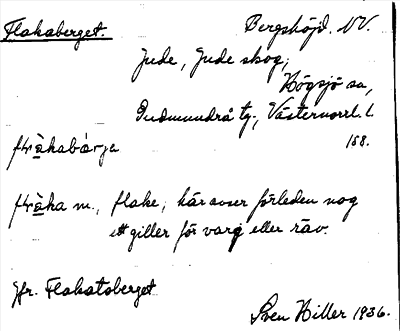 Flakaberget. Bergshöjd. NV.
Jude, Jude skog,
Högsjö sn,
Gudmundrå tg., Västernorrl. l.
158.
flråkabárga
flråka m., flake; här avser förleden nog
ett giller för varg eller räv.
Jfr. Flakatoberget
Sven Hiller 1936.